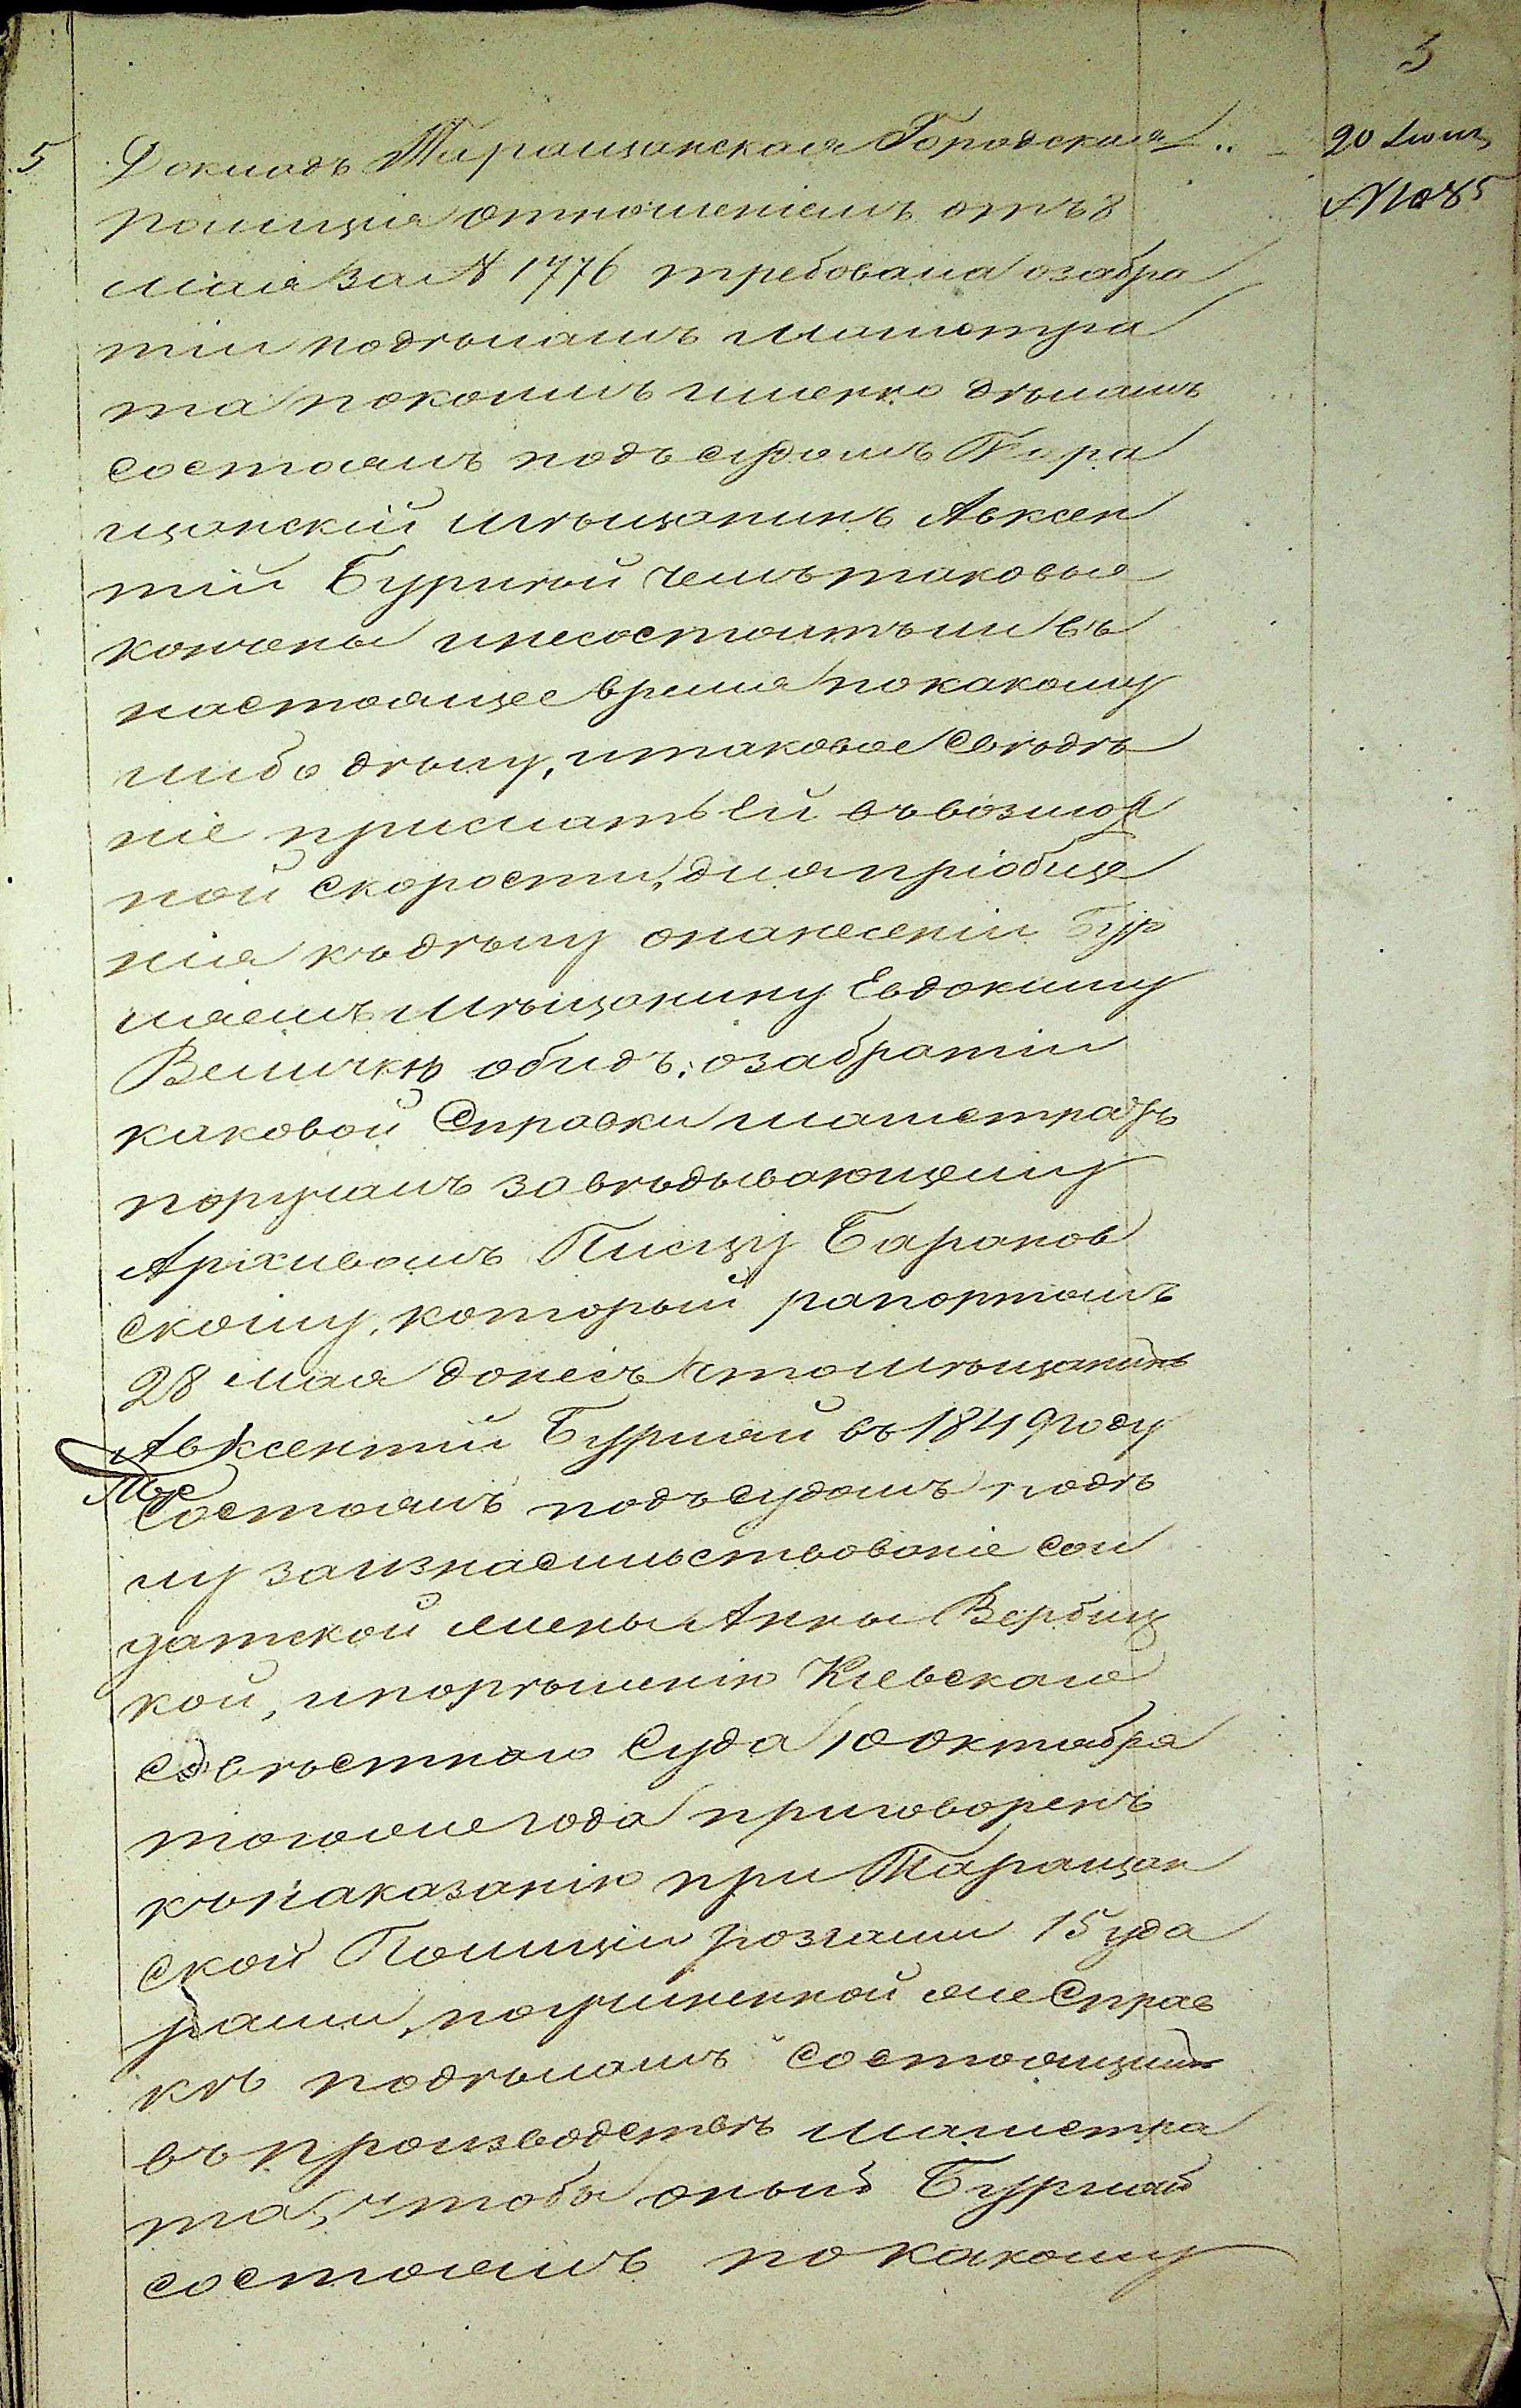 5
5
Докладъ Таращанская Городская
20 Июня
№ 85
полиція отношеніемъ отъ 8
мая за № 1776 требовала о забра
тіи по дѣламъ магистра
та по какимъ именно дѣламъ
состоялъ подъ судомъ Тара
щанскій мѣщанинъ Авксен
тій Бурлай чемъ таковыя
кончены и несостоитъ ли въ
настоящее время по какому
либо дѣлу, и таковое свѣдѣ
ніе прислать ей въ возмож
ной скорости, для пріобще
нія къ дѣлу о нанесеніи Бур
лаемъ мѣщанину Евдокиму
Величкѣ обидъ; о забратіи
каковой справки магистратъ
поручалъ завѣдывающему
Архивомъ Писцу Баранов
скому, который рапортомъ
28 мая донесъ что мѣщанинъ
Авксентий Бурлай въ 1849 году
состоялъ подъ судомъ по дѣ
лу за изнасильствованіе сол
датской жены Анны Вербиц
кой, и по рѣшенію Кіевскаго
совѣстнаго Суда 10 октября
того же года приговоренъ
къ наказанію при Таращан
ской Полиціи розгами 15 уда
рами, по учиненной же Справ
кѣ по дѣламъ состоящимъ
въ производствѣ магистра
та, чтобы оный Бурлай
состоялъ по какому